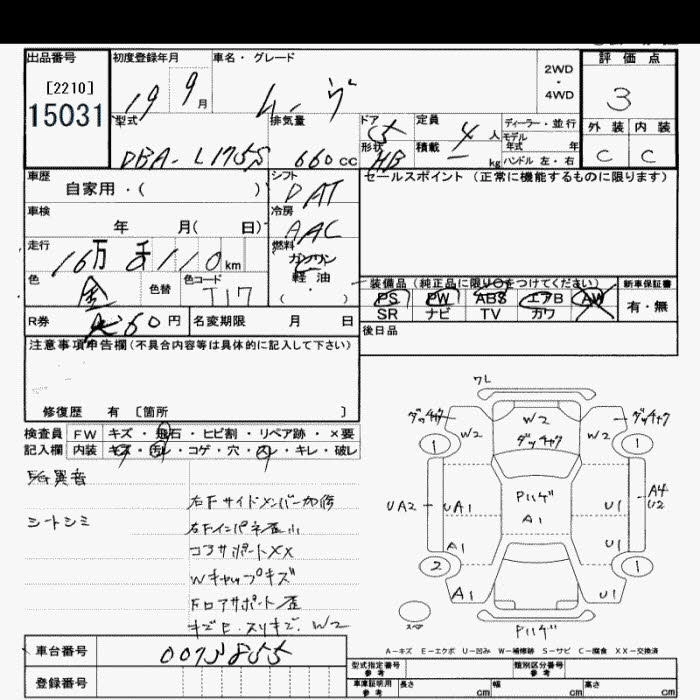 出品番号 初度登録年月 車名・グレード 2WD・4WD 評価点
[2210]
15031
19 9月 ムーヴ 3
型式 排気量 ドア形状 定員 4人 ディーラー・並行 外装 内装
積載 ー kg モデル年式 年
DBA-L175S 660cc 5 HB ハンドル 左・右 C C
車歴 自家用・( ) シフト DAT セールスポイント (正常に機能するものに限ります)
車検 年 月( 日) 冷房 AAC
走行 16万 8千110km 燃料 ガソリン 軽油 ・( )
色 金 色替 色コード T17
装備品 (純正品に限り○をつけてください) 新車保証書
PS PW ABS エアB AW 有・無
SR ナビ TV カワ
R券 60円 名変期限 月 日 後日品
注意事項申告欄(不具合内容等は具体的に記入して下さい)
修復歴 有 〔箇所 〕
検査員記入欄 FW キズ・飛石・ヒビ割・リペア跡・×要
内装 キズ・汚レ・コゲ・穴・スレ・キレ・破レ
異音
シートシミ
右Fサイドメンバー加修
右Fインパネ歪小
コアサポートXX
Wキャップキズ
Fロアサポート歪
W2
ワレ
W2 W2 W2
1 1
UA2 UA1 Pハゲ A1 U1 A4 U2
A1 U1
2 1
A1 U1
スペア Pハゲ
A-キズ E-エクボ U-凹み W-補修跡 S-サビ C-腐食 XX-交換済
車台番号
型式指定番号 参考 類別区分番号 参考
登録番号 車庫証明用 参考 長さ cm 幅 cm 高さ cm